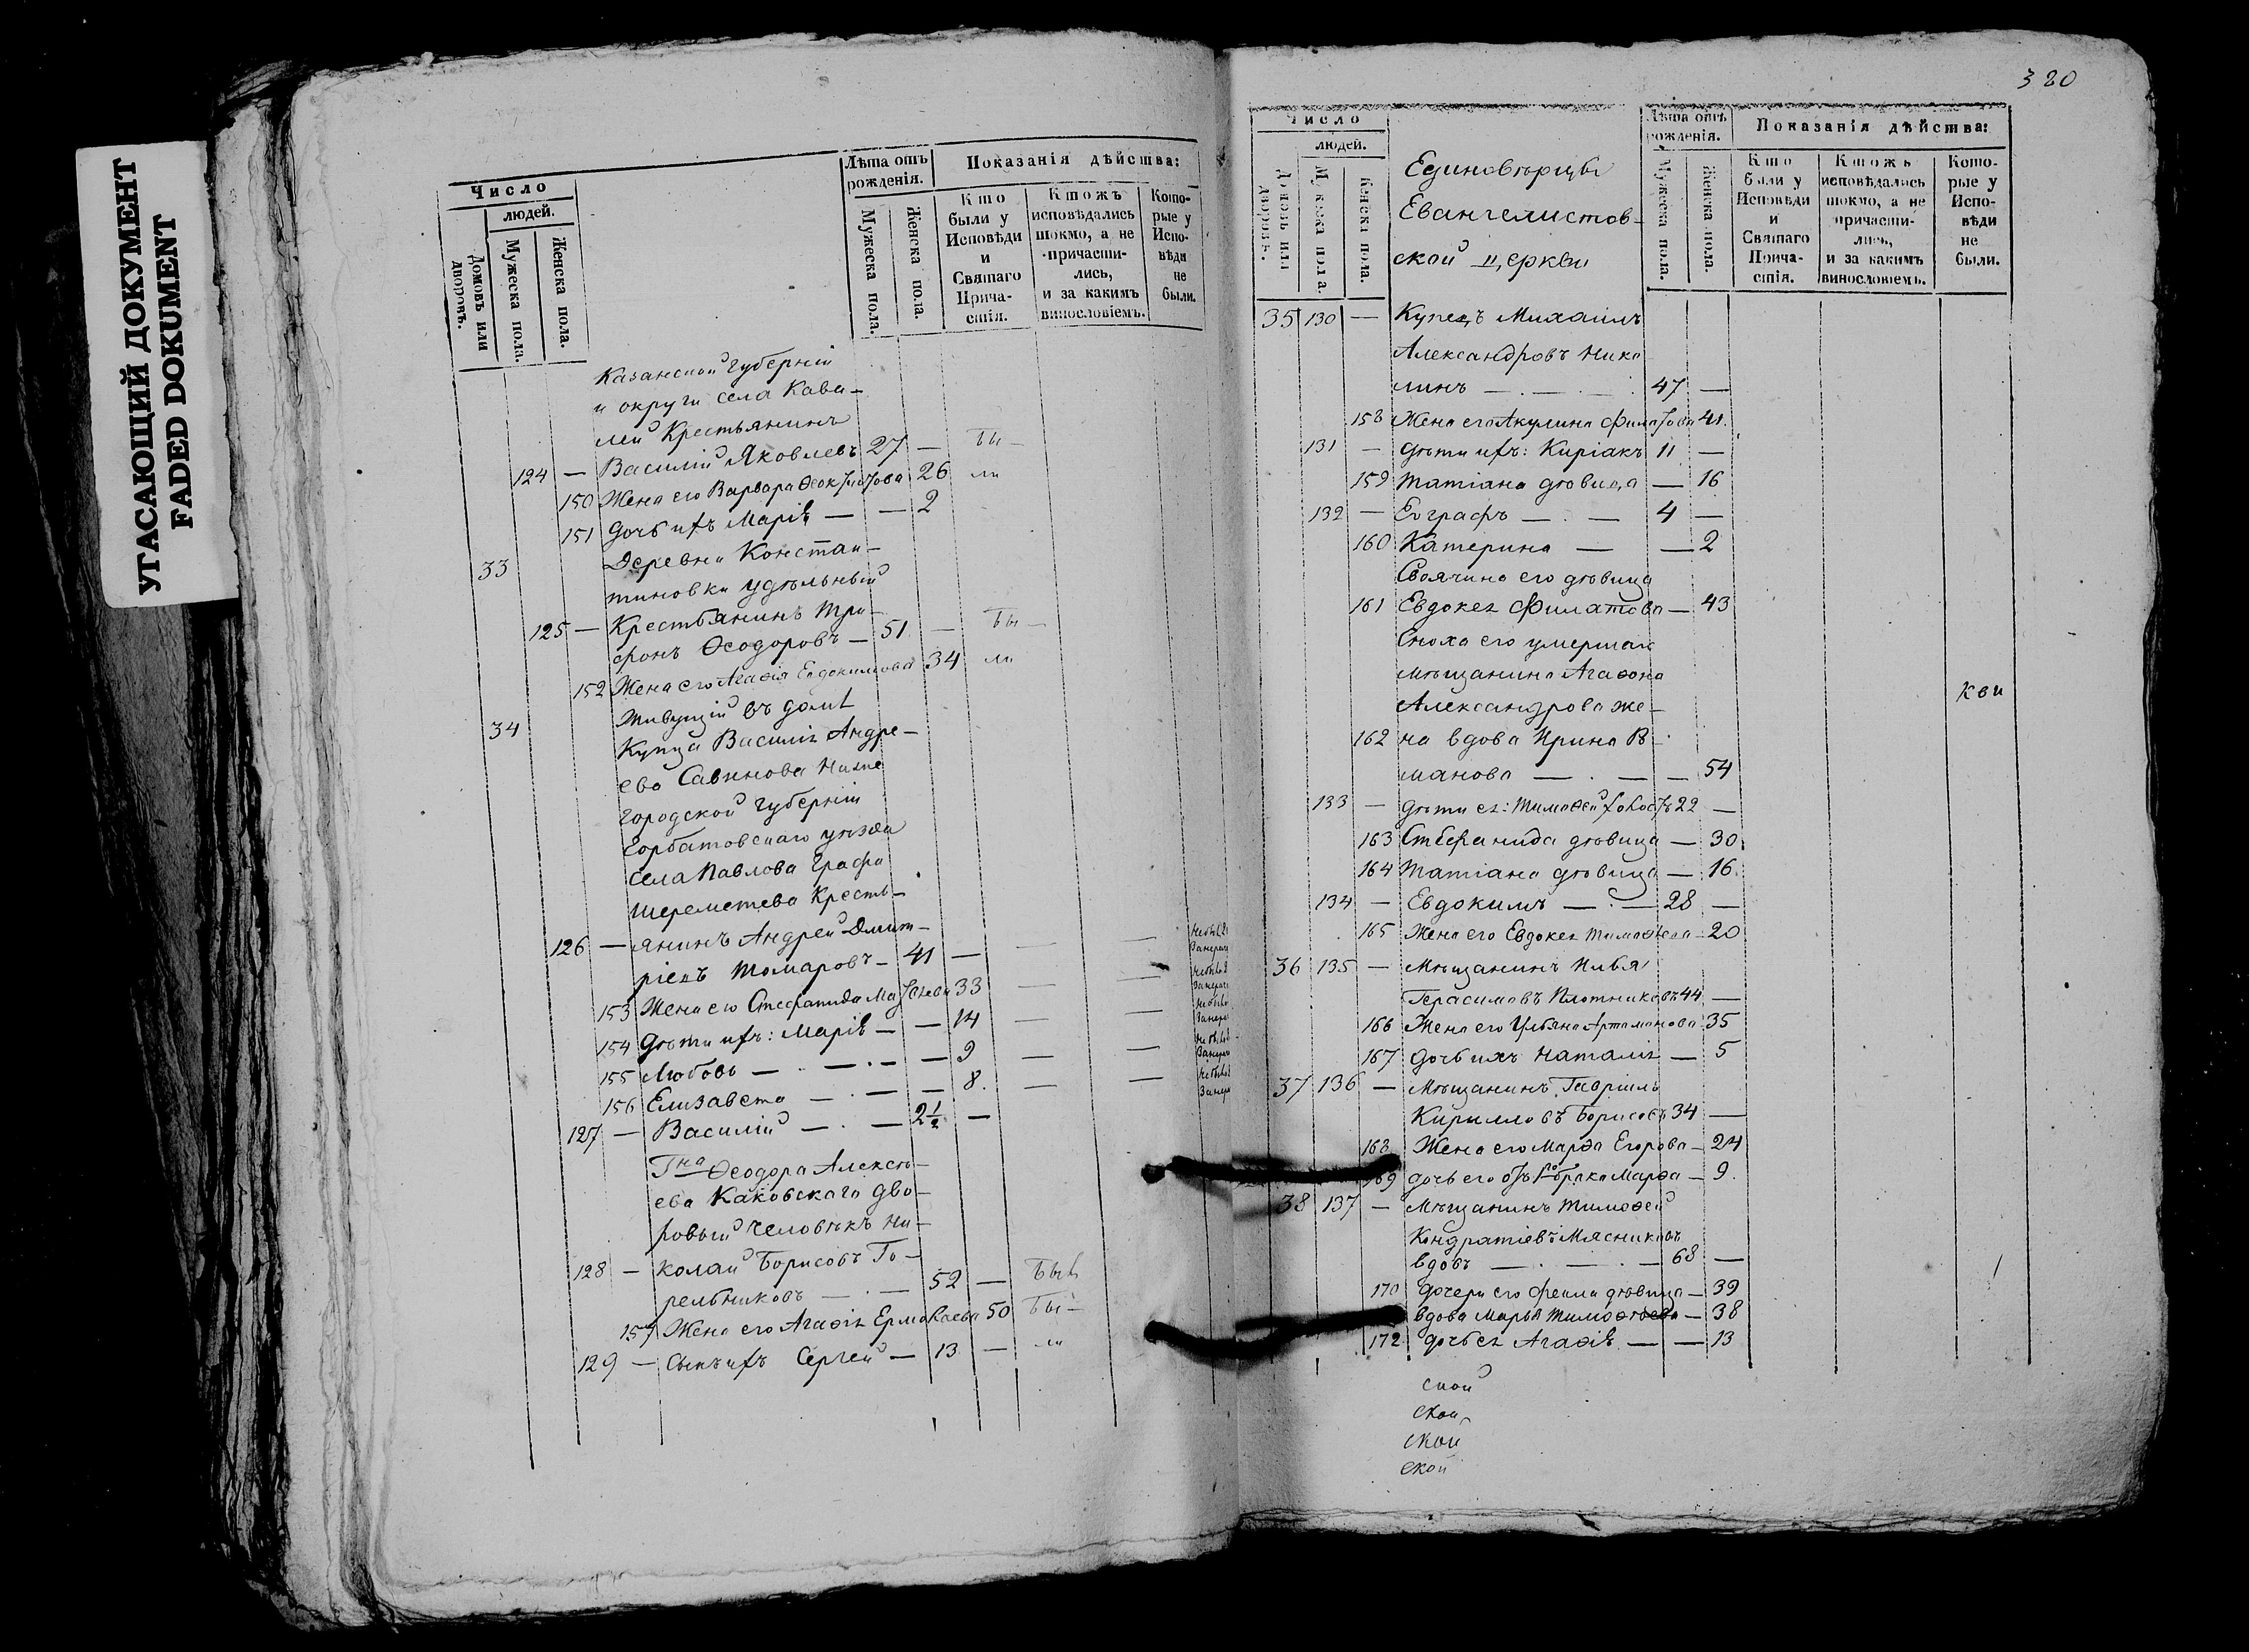 УГАСАЮЩИЙ ДОКУМЕНТ
FADED DOKUMENT
Число
людей.
Домовъ или дворовъ.
Мужеска пола.
Женска пола.
Лѣта отъ рожденія.
Мужеска пола.
Женска пола.
Показанія дѣйства:
Кто были у Исповѣди и Святаго Причастія.
Ктожъ исповѣдались токмо, а не причастились, и за какимъ винословіемъ.
Которые у Исповѣди не были.
Казанской губерніи
и округи села Кава-
лей Крестьянинъ
124 — Василій Яковлевъ 27 — бы-
150 Жена его Варвара Ѳеоктистова 26 ли
151 Дочь ихъ Марія — — 2
33 Деревни Констан-
тиновки удѣльный
125 — Крестьянинъ Три-
фонъ Ѳеодоровъ — 51 — бы-
152 Жена его Агаѳія Евдокимова 34 ли
34 Живущій въ домѣ
Купца Василія Андре-
ева Савинова Ниже
городской губерніи
Горбатовскаго уѣзда
села Павлова Графа
Шереметева Кресть-
126 — янинъ Андрей Дмит-
ріевъ Томаровъ — 41 —
153 Жена его Стефанида Матвеева 33
154 Дѣти ихъ: Марія — — 14
155 Любовь — . — . — — 9
156 Елизавета — . — — 8.
127 — Василій — . — 2 1/2 —
Гна Ѳеодора Алексѣ-
ева Каковскаго дво-
ровый человѣкъ Ни-
128 — колай Борисовъ Го-
рельниковъ — . — 52 — былъ
157 Жена его Агаѳія Ермолаева 50 бы-
129 — Сынъ ихъ Сергей — 13 — ли
380
Число
людей.
Домовъ или дворовъ.
Мужеска пола.
Женска пола.
Единовѣрцы
Евангелистов-
ской церкви
Лѣта отъ рожденія.
Мужеска пола.
Женска пола.
Показанія дѣйства:
Кто были у Исповѣди и Святаго Причастія.
Ктожъ исповѣдались токмо, а не причастились, и за какимъ винословіемъ.
Которые у Исповѣди не были.
35 130 — Купецъ Михаилъ
Александровъ Ника
линъ — . — . 47 —
158 Жена его Акулина Филатова 41.
131 — Дѣти ихъ: Киріакъ 11 —
159 Татіана дѣвица — 16
132 — Евграфъ — . — 4 —
160 Катерина — — 2
Своячина его дѣвица
161 Евдокея Филатова — 43
Сноха его умершаго
мѣщанина Агаѳона
кви
Александрова же-
162 на вдова Ирина Р
манова — . — — 54
133 — Дѣти ея: Тимоѳей холостъ 22 —
163 Стефанида дѣвица — 30
164 Татіана дѣвица — 16.
134 — Евдокимъ — . — 28 —
165 Жена его Евдокея Тимоѳеева — 20
36 135 — Мѣщанинъ Илья
Герасимовъ Плотниковъ 44 —
166 Жена его Ульяна Артаманова 35
167 Дочь ихъ Наталія — 5
37 136 — Мѣщанинъ Гавріилъ
Кирилловъ Борисовъ 34 —
168 Жена его Марѳа Егорова — 24
169 дочь его отъ 1го брака Марѳа — 9.
38 137 — Мѣщанинъ Тимоѳей
Кондратіевъ Мясниковъ
вдовъ — . — . — 68 —
170 Дочери его Фекла дѣвица — 39
вдова Марья Тимоѳеева — 38
172 дочь ея Агаѳія — — 13
ской
ской
ской
ской